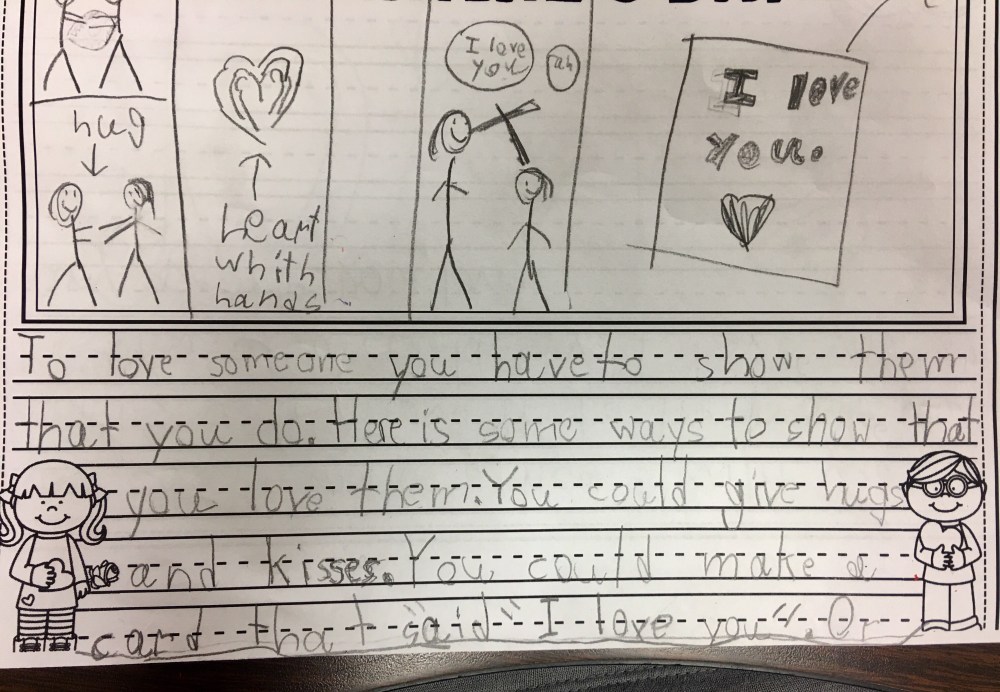 I love
you
hug
heart
whith
hands
I love
you.
To love someone you have to show them
that you do. Here is some ways to show that
you love them. You could give hugs
and kisses. You could make a
card that "said" I love you". Or